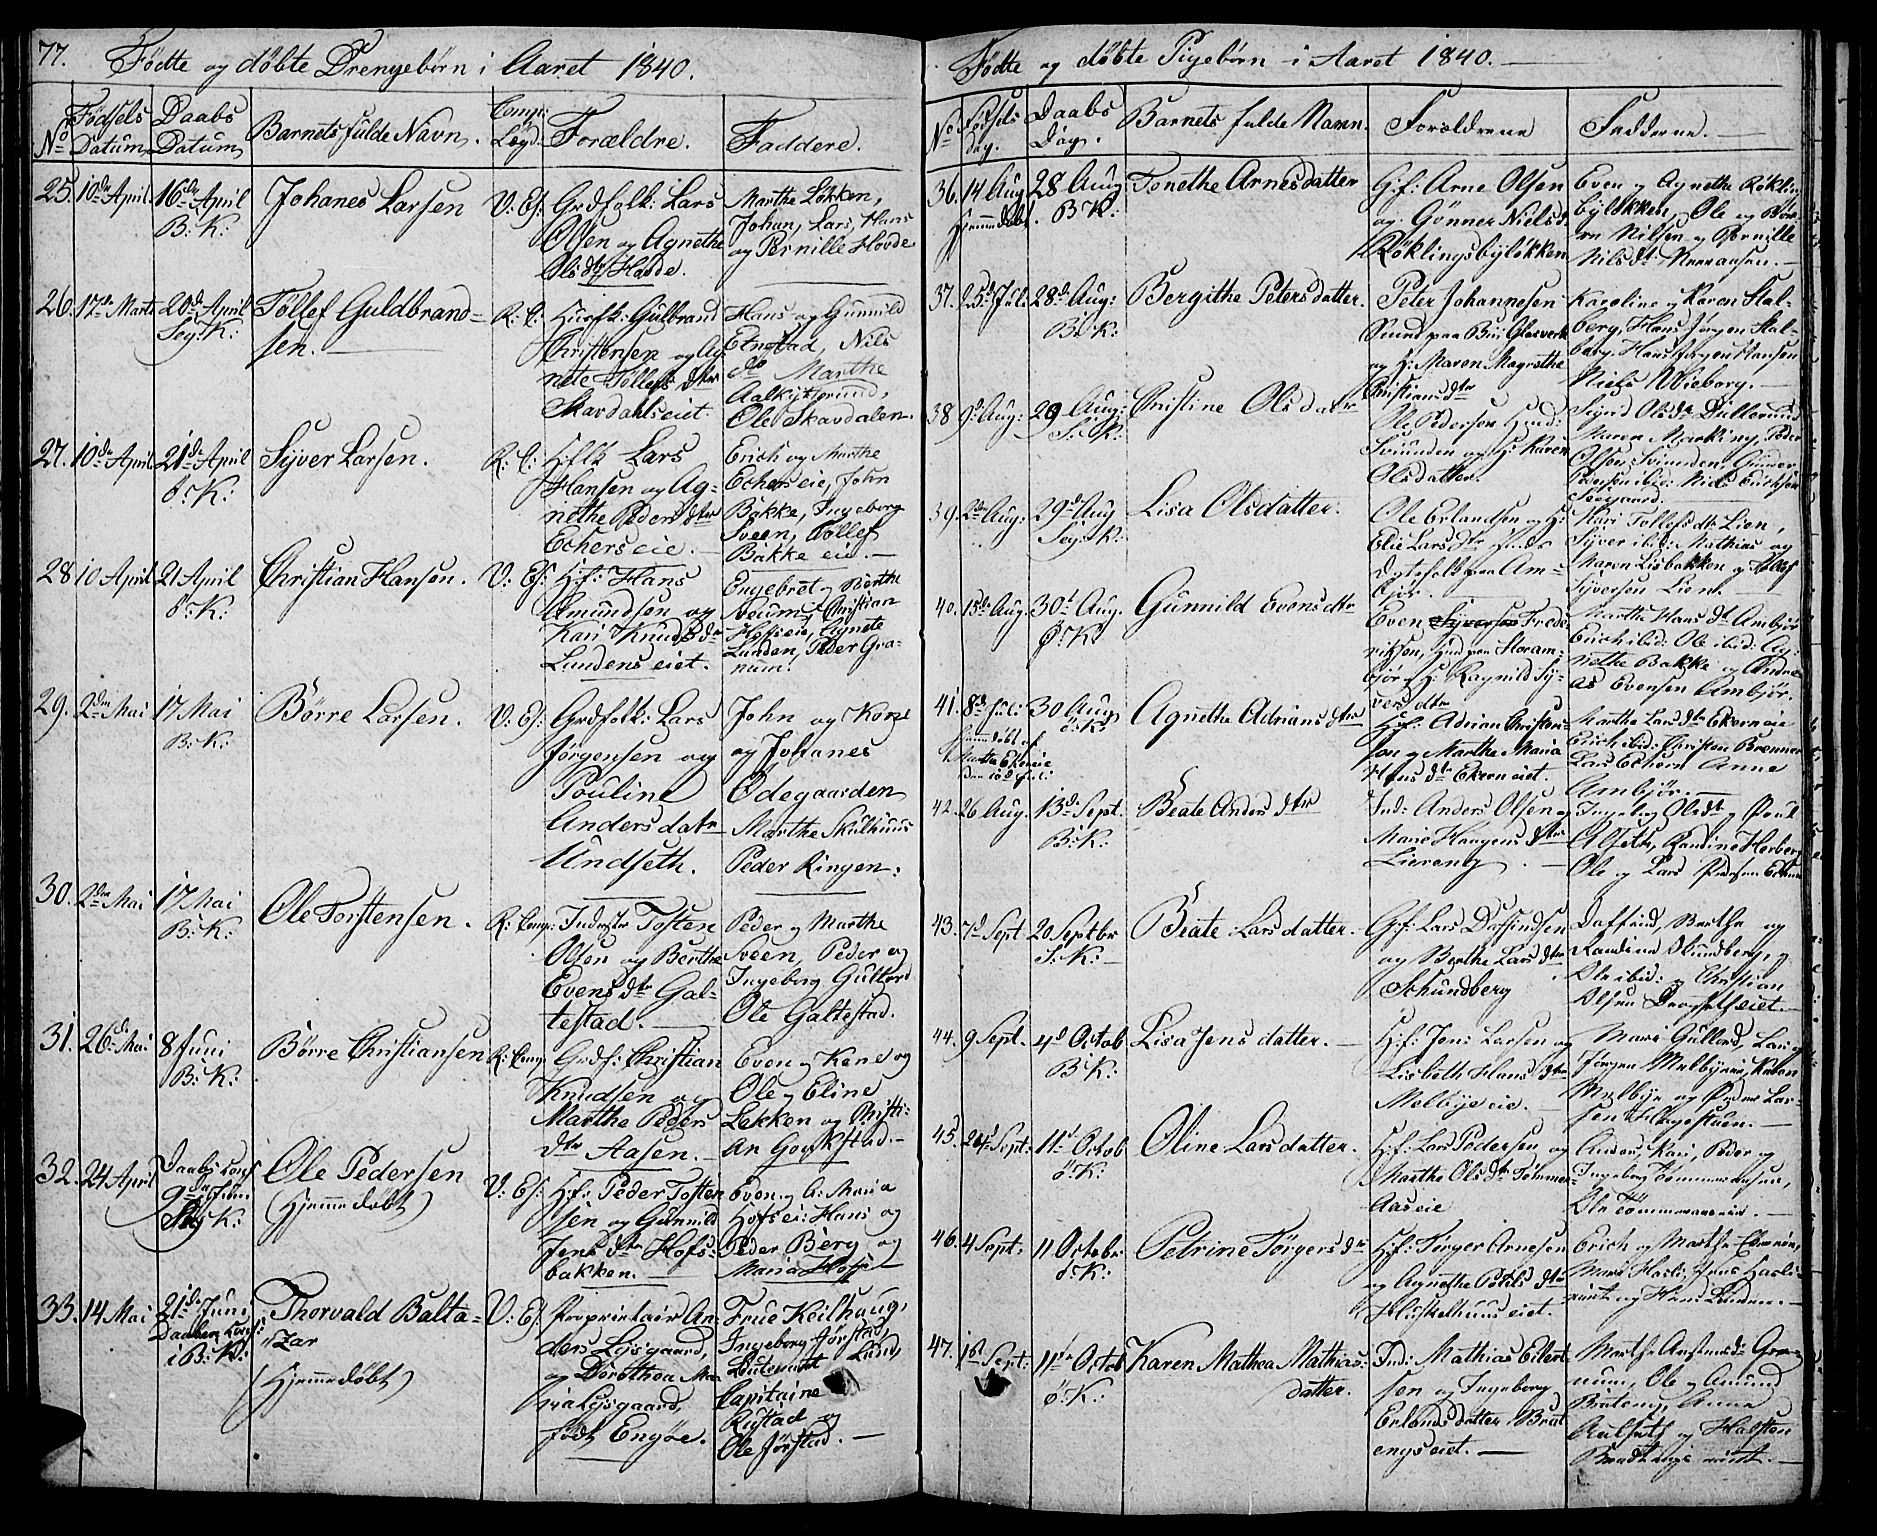 77. Fødte og døbte Drengebørn i Aaret 1840.
No Fødsels Datum Daabs Datum Barnets fulde Navn. Comp: Lægd. Forældre. Faddere.
25. 10de April 16de April B: K: Johanes Larsen V: Es: Grdfolk: Lars
Olsen og Agnethe
Olsdtr Hovde.
Marthe Løkken,
Johan, Lars, Hans
og Pernille Hovde
26. 17de Marts 20de April Seg: K: Tøllef Guldbrand=
sen.
R: C: Husfk: Gulbrand
Christensen og Ag
nete Tøllefs dtr
Skardahlseiet
Hans og Gunnild
Etnstad, Nils
do Marthe
Ole Skavdalen.
27. 10de April 21de April ö: K: Syver Larsen. R: C: Hflk Lars
Hansen og Ag=
nethe Peders dtr
Echerseie.
Erich og Marthe
Echerseie, John
Bakke, Ingeborg
Sveen, Tollef
Bakke eie.
28 10 April 21 April ö: K: Christian Hansen. V: Es: H:f: Hans
Amundsen og
Kari Knuds dr
Lundens eiet.
Engebret og Berthe
Christian
Hofseie, Agnete
Lunden, Peder Gra=
num.
29. 2den Mai 17 Mai B: K: Børre Larsen. V: Es: Grdfolk: Lars
Jørgensen og
Pouline
Anders datr
Undseth.
John og Kone
og Johanes
Ødegaarden
Marthe Skulhuus
Peder Ringen.
30. 2den Mai 17 Mai B: K: Ole Torstensen. R: Comp: Inderster Tosten
Olsen og Berthe
Evens dtr Gal=
testad.
Peder og Marthe
Sveen, Peder og
Ingeborg Gullord
Ole Galtestad.
31. 26de Mai 8 Juni B: K: Børre Christiansen R: Comp Grdf: Christian
Knudsen og
Marthe Peders
dtr Aasen.
Even og Kone og
Ole og Eline
Løkken og Christi=
an
32. 24 April Daabs conf 9de Juni K: Ole Pedersen
(Hjemmedøbt)
V: Es: H:f: Peder Tosten
sen og Gunnild
Jens dtr Hofs=
bakken.
Even og A: Maria
Hofseie: Hans og
Peder Berg og
Maria Hofseie
33. 14 Mai 21de Juni Daaben conf: i B: K: Thorvald Balta=
zar
(Hjemmedøbt)
V: Es Proprietair An=
ders Lysgaard,
og Dorothea Ma=
ria Lysgaard,
født Engøe.
Frue Keilhaug,
Ingeborg Jørstad,
Lieutenant Lund,
Capitaine
Rustad og
Ole Jørstad.
Fødte og døbte Pigebørn i Aaret 1840.
No Fødsels dag. Daabs Dag. Barnets fulde Navn. Forældrene Fadderne.
36. 14 Aug Hjemmedøbt. 28 Aug B K: Tonethe Arnesdatter G:f: Arne Olsen
og Gønner Nielsd:
Røklingsbyløkken
Even og Agnethe Røklings
byløkken, Ole og
Nilsen og Pernille
Nilsdtr
37. 25d Juli 28d Aug: B: K: Bergithe Petersdatter. Peter Johannesen
Sund paa
og H: Maren Magrethe
Christiansdtr
Karoline og Karen Stal=
berg, Hans Jørgen Stal=
berg, Hans Jørgen Hansen
Niels Wieborg.
38 9d Aug: 29 Aug: S: K: Christine Olsdatr Ole Pedersen
Svinnden og H: Karen
Olsdatter.
Sigrid Olsdtr
Maren Peder
Olsen Svinnden,
Pedersen ibid: Niels Erichsen
39. 2den Aug: 29de Aug Seg: K: Lisa Olsdatter. Ole Erlandsen og H:
Elie Larsdtr
paa Am=
bjør.
Kari Tollefsdtr Lien,
Syver ibid: Mathias og
Maren Lisbakken og Tollef
Syversen Lien.
40. 15de Aug. 30t Aug. Ø: K: Gunnild Evensdtr Even Syversen Frede
riksen, paa Storam=
bjør og H: Ragnild Sy=
versdtr
Marthe Hansdtr Ambjør
Erich ibid: Ole ibid: Ag=
nethe Bakke og Andre
as Evensen Ambjør.
41. 8de Juli Hjemmedøbt af Marthe Ekerneie den 10de Juli 30 Aug: ö: K: Agnethe Adriansdtr H:f: Adrian Christen=
sen og Marthe Maria
Hansdtr Ekerneiet.
Marthe Larsdtr Ekerneie
Erich ibid: Christen
Lars Echern Anne
Ambjør.
42. 26 Aug. 13de Sept. B: K: Beate Andersdtr Ind: Anders Olsen og
Marie Haagensdtr
Liereng
Ingeborg Olsdtr og Poul
Alseth, Randine
Ole og Lars Pedersen
43. 7d Sept 20 Septbr S: K: Beate Larsdatter. G:f: Lars Daffindsen
og Berthe Larsdtr
Schundberg
Daffind, Berthe og
Randine Skundberg,
Ole ibid: og Christian
Olsen
44. 9 Sept. 4d Octob B K: Lisa Jensdatter. H:f: Jens Larsen og
Lisbeth Hansdtr
Melbyeeie.
Mari Gullord, Lars
Jørgen Melbyeeie, Karen
Melbye og Peder Lar=
sen
45. 24d Sept: 11d Octob ö: K: Oline Larsdatter. H:f: Lars Pedersen og
Marthe Olsdtr Tømmer=
aaseie
Anders, Kari, Peder og
Ingeborg Tømmeraasen,
Ole Tømmeraaseie.
46. 4 Sept: 11 Octobr ö: K: Petrine Tørgersdr H:f: Tørger Arnesen
og Agnethe Povelsdtr
Huskelhuuseiet.
Erich og Marthe
Mari Hasli, Jens Hasli=
eiet og Hans Lunden.
47. 1st Sept: 11d Octob ö: K: Karen Mathea Mathias=
datter.
Ind: Mathias Eilert
sen og Ingeborg
Erlandsdatter Brat
engseiet.
Marthe Gra=
num, Ole og Amund
Brateng, Anne
og Halsten